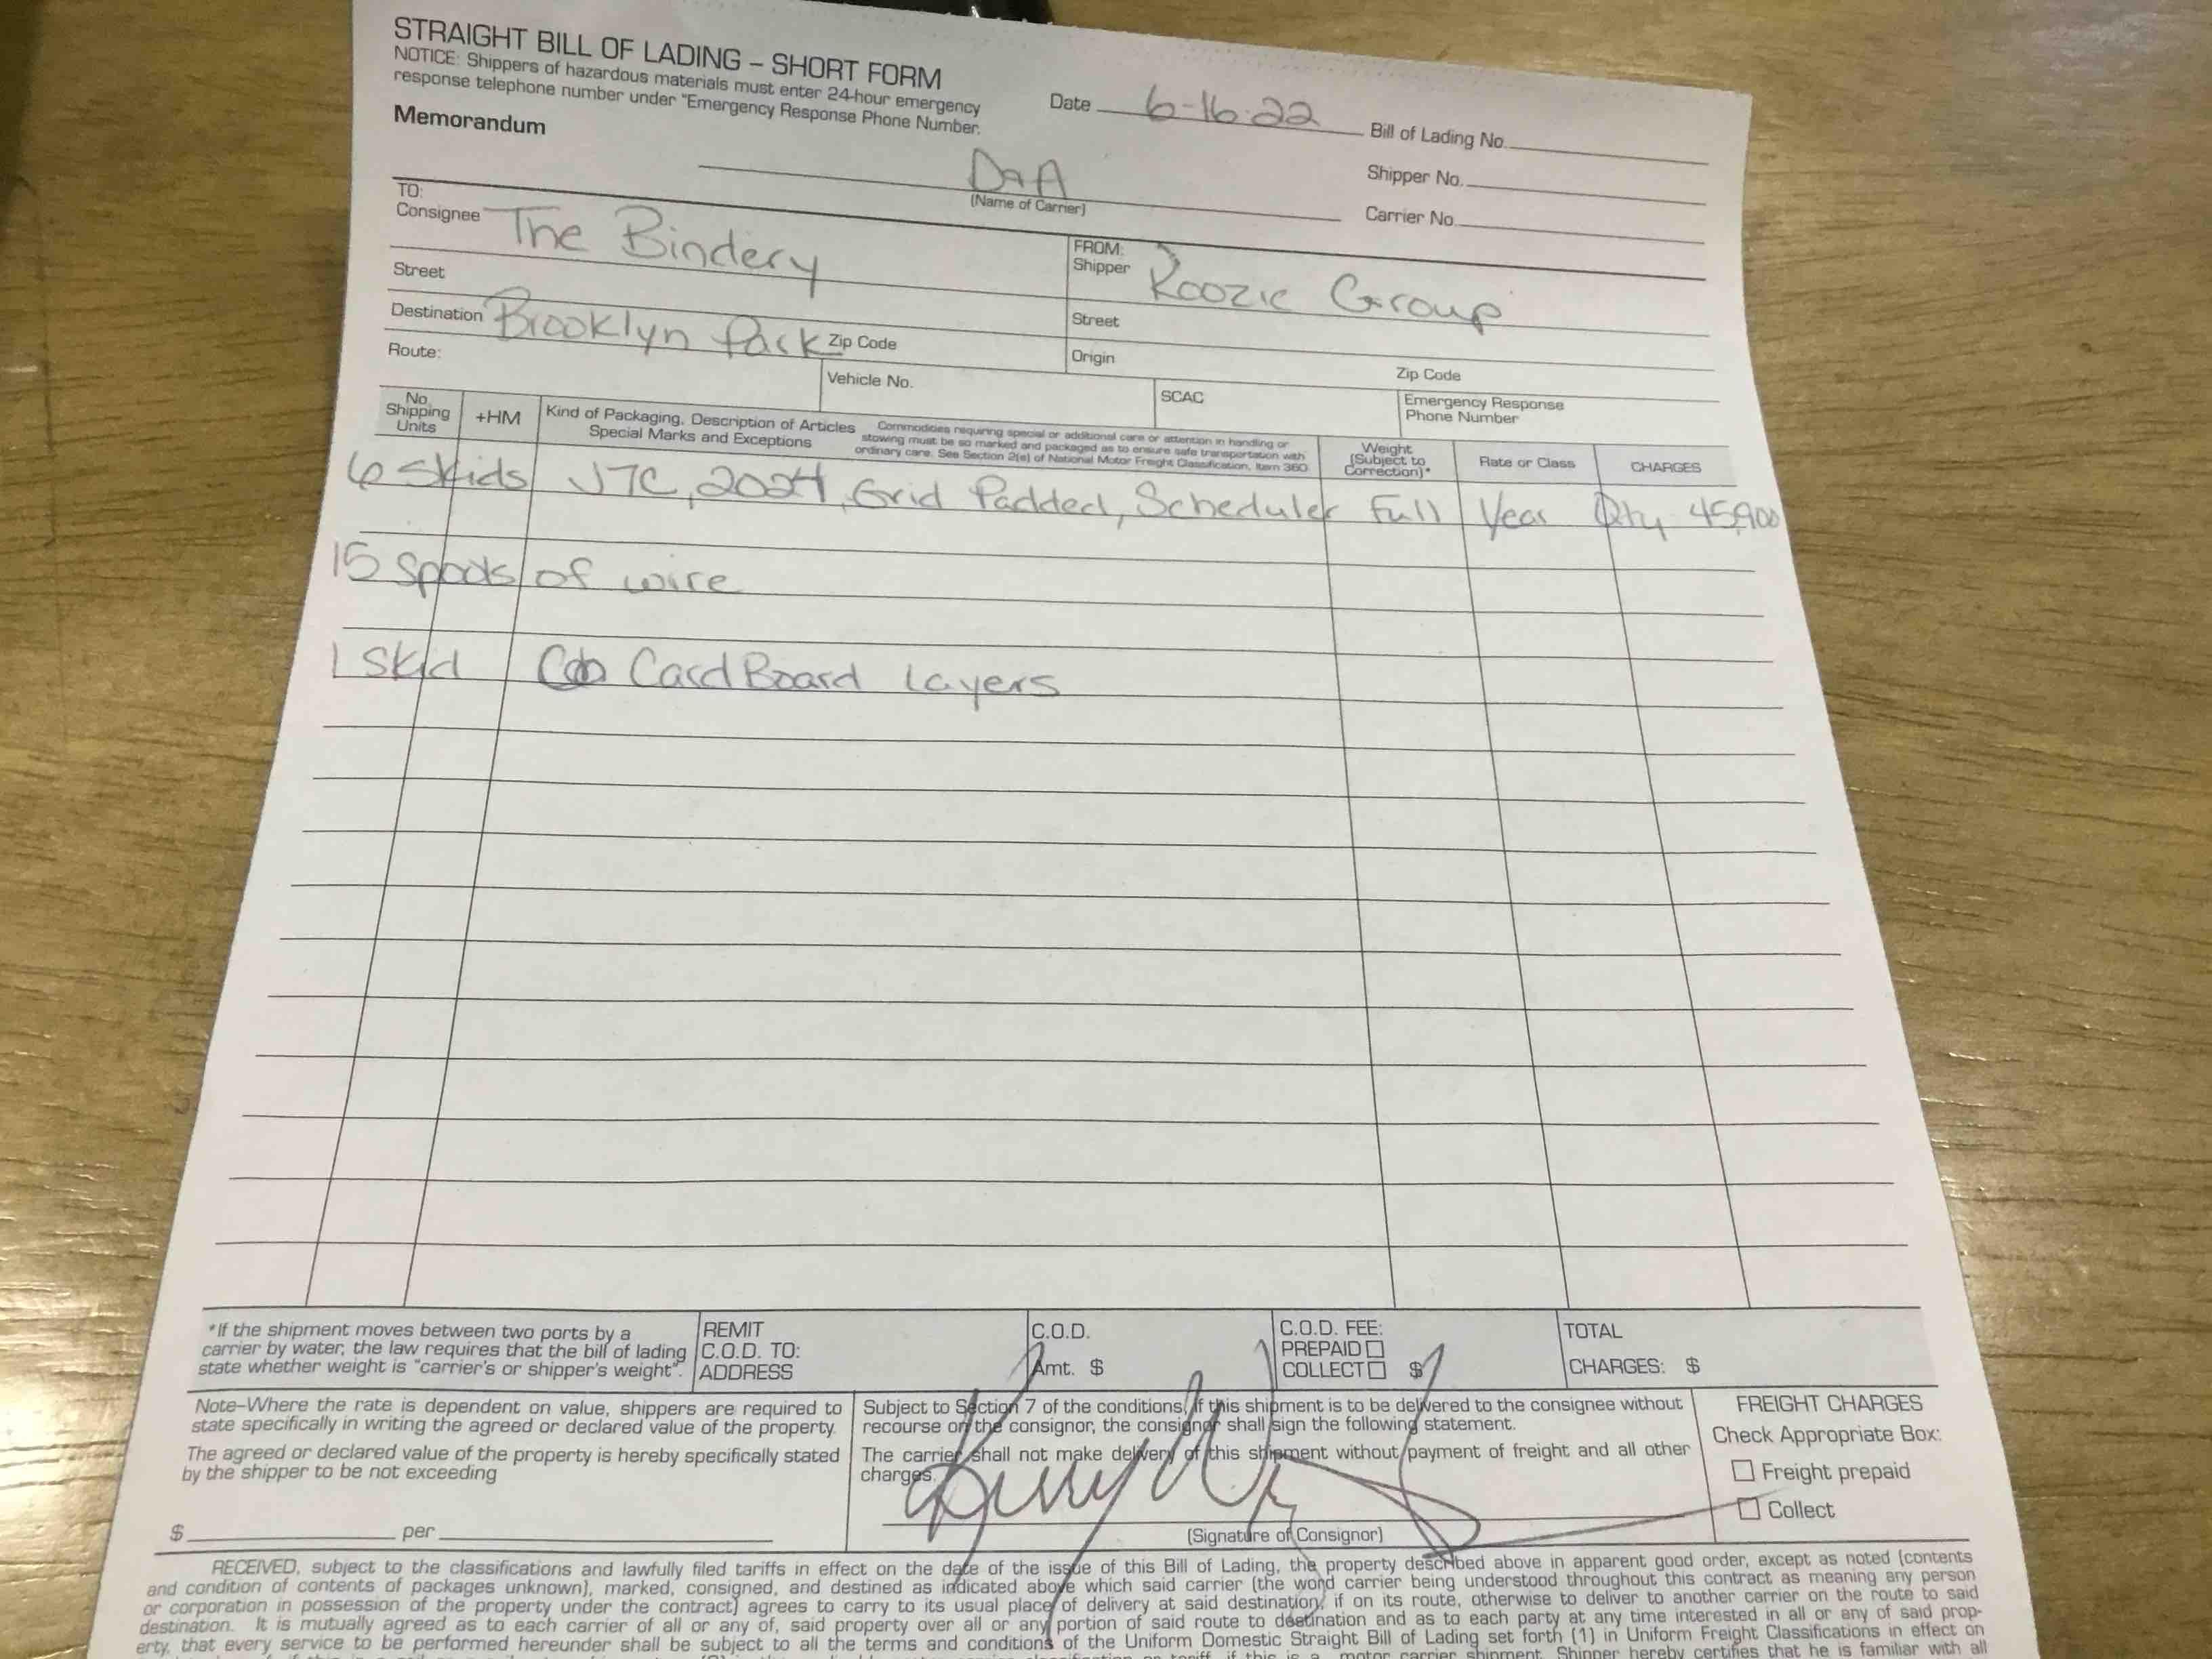 STRAIGHT BILL OF LADING – SHORT FORM
NOTICE: Shippers of hazardous materials must enter 24-hour emergency
response telephone number under "Emergency Response Phone Number.
Memorandum
Date 6-16-22
Bill of Lading No.
Shipper No.
Carrier No.
(Name of Carrier)
TO:
Consignee The Bindery
FROM:
Shipper Koozie Group
Street
Street
Destination Brooklyn Park Zip Code
Origin
Zip Code
Route:
Vehicle No.
SCAC
Emergency Response
Phone Number
No.
Shipping
Units
+HM
Kind of Packaging, Description of Articles
Special Marks and Exceptions
Commodities requiring special or additional care or attention in handling or
stowing must be so marked and packaged as to ensure safe transportation with
ordinary care. See Section 2(e) of National Motor Freight Classification, Item 360
Weight
(Subject to
Correction)*
Rate or Class
CHARGES
6 Skids JTC, 2024, Grid Padded, Scheduler Full Year Qty 45,900
15 Spools of wire
1 Skid CardBoard Layers
*If the shipment moves between two ports by a
carrier by water, the law requires that the bill of lading
state whether weight is "carrier's or shipper's weight".
REMIT
C.O.D. TO:
ADDRESS
C.O.D.
Amt. $
C.O.D. FEE:
PREPAID
COLLECT $
TOTAL
CHARGES: $
Note–Where the rate is dependent on value, shippers are required to
state specifically in writing the agreed or declared value of the property.
The agreed or declared value of the property is hereby specifically stated
by the shipper to be not exceeding
$ per
Subject to Section 7 of the conditions, if this shipment is to be delivered to the consignee without
recourse on the consignor, the consignor shall sign the following statement.
The carrier shall not make delivery of this shipment without payment of freight and all other
charges.
(Signature of Consignor)
FREIGHT CHARGES
Check Appropriate Box:
Freight prepaid
Collect
RECEIVED, subject to the classifications and lawfully filed tariffs in effect on the date of the issue of this Bill of Lading, the property described above in apparent good order, except as noted (contents
and condition of contents of packages unknown), marked, consigned, and destined as indicated above which said carrier (the word carrier being understood throughout this contract as meaning any person
or corporation in possession of the property under the contract) agrees to carry to its usual place of delivery at said destination, if on its route, otherwise to deliver to another carrier on the route to said
destination. It is mutually agreed as to each carrier of all or any of, said property over all or any portion of said route to destination and as to each party at any time interested in all or any of said prop-
erty, that every service to be performed hereunder shall be subject to all the terms and conditions of the Uniform Domestic Straight Bill of Lading set forth (1) in Uniform Freight Classifications in effect on
motor carrier shipment. Shipper hereby certifies that he is familiar with all